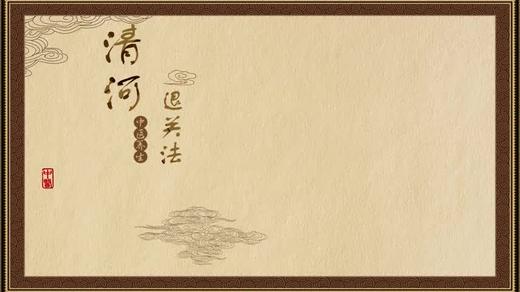 清河
中医养生
退关法
中醫